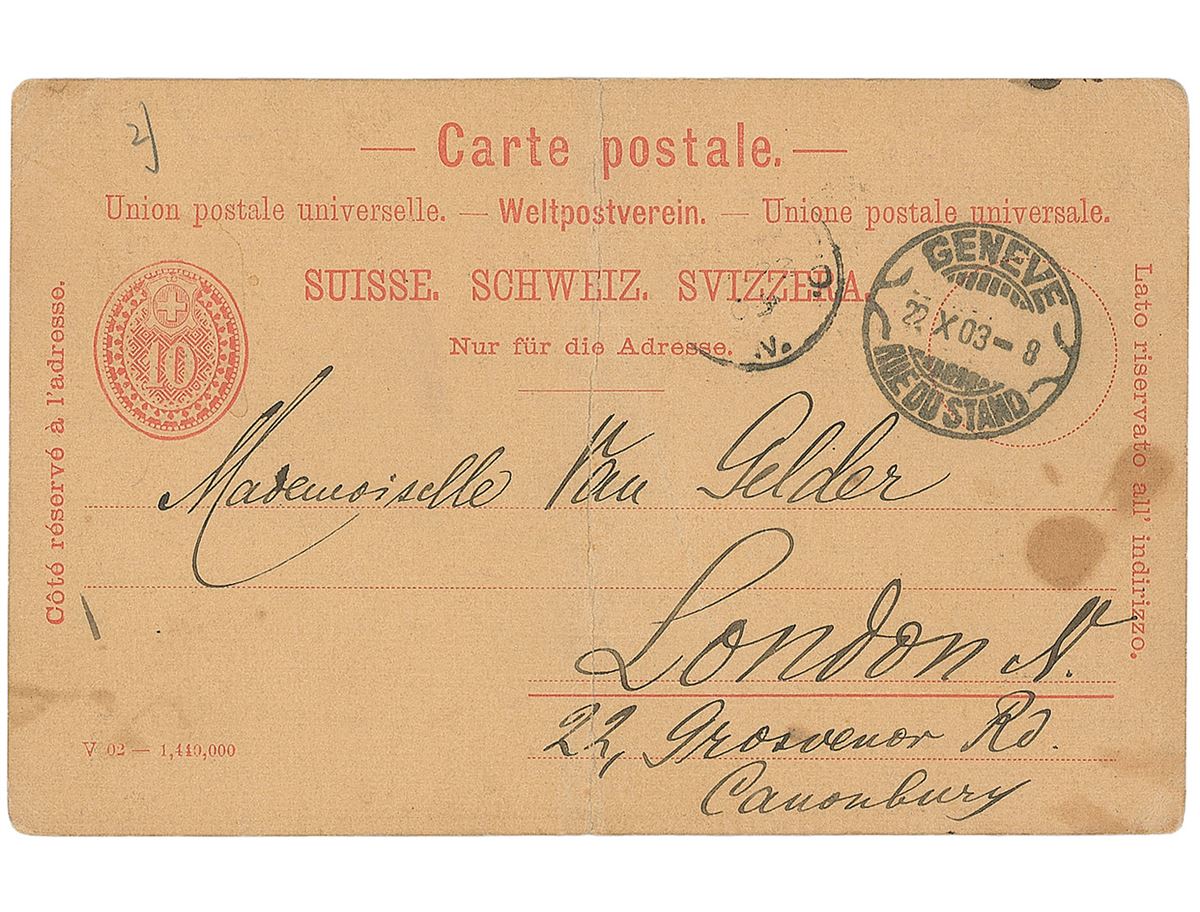 2)
— Carte postale. —
Union postale universelle. — Weltpostverein. — Unione postale universale.
SUISSE. SCHWEIZ. SVIZZERA.
Nur für die Adresse.
Côté réservé à l'adresse.
Lato riservato all' indirizzo.
10
GENEVE
22 X 03 – 8
RUE DU STAND
Mademoiselle Van Gelder
London N.
22, Grosvenor Rd.
Canonbury
V 02 — 1,440,000